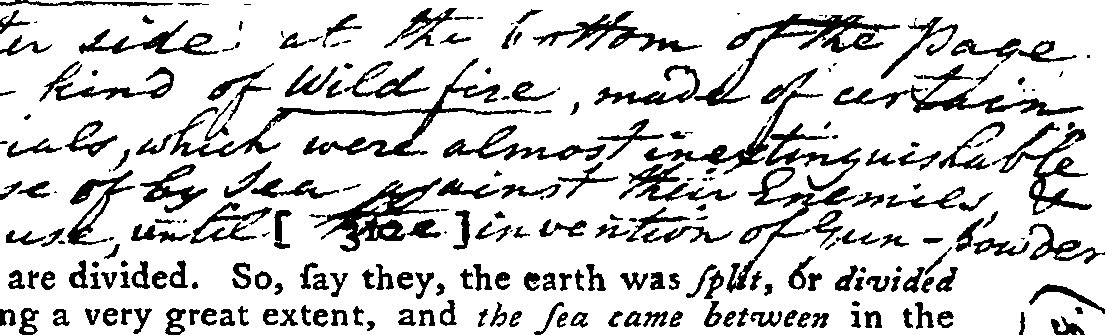 ter side at the bottom of the page
kind of Wild fire, made of certain
ials, which were almost inextinguishable
se of by Sea against their Enemies, &
use, until [ the ] invention of Gun-powder
are divided. So, ſay they, the earth was ſplit, or divided
ng a very great extent, and the ſea came between in the